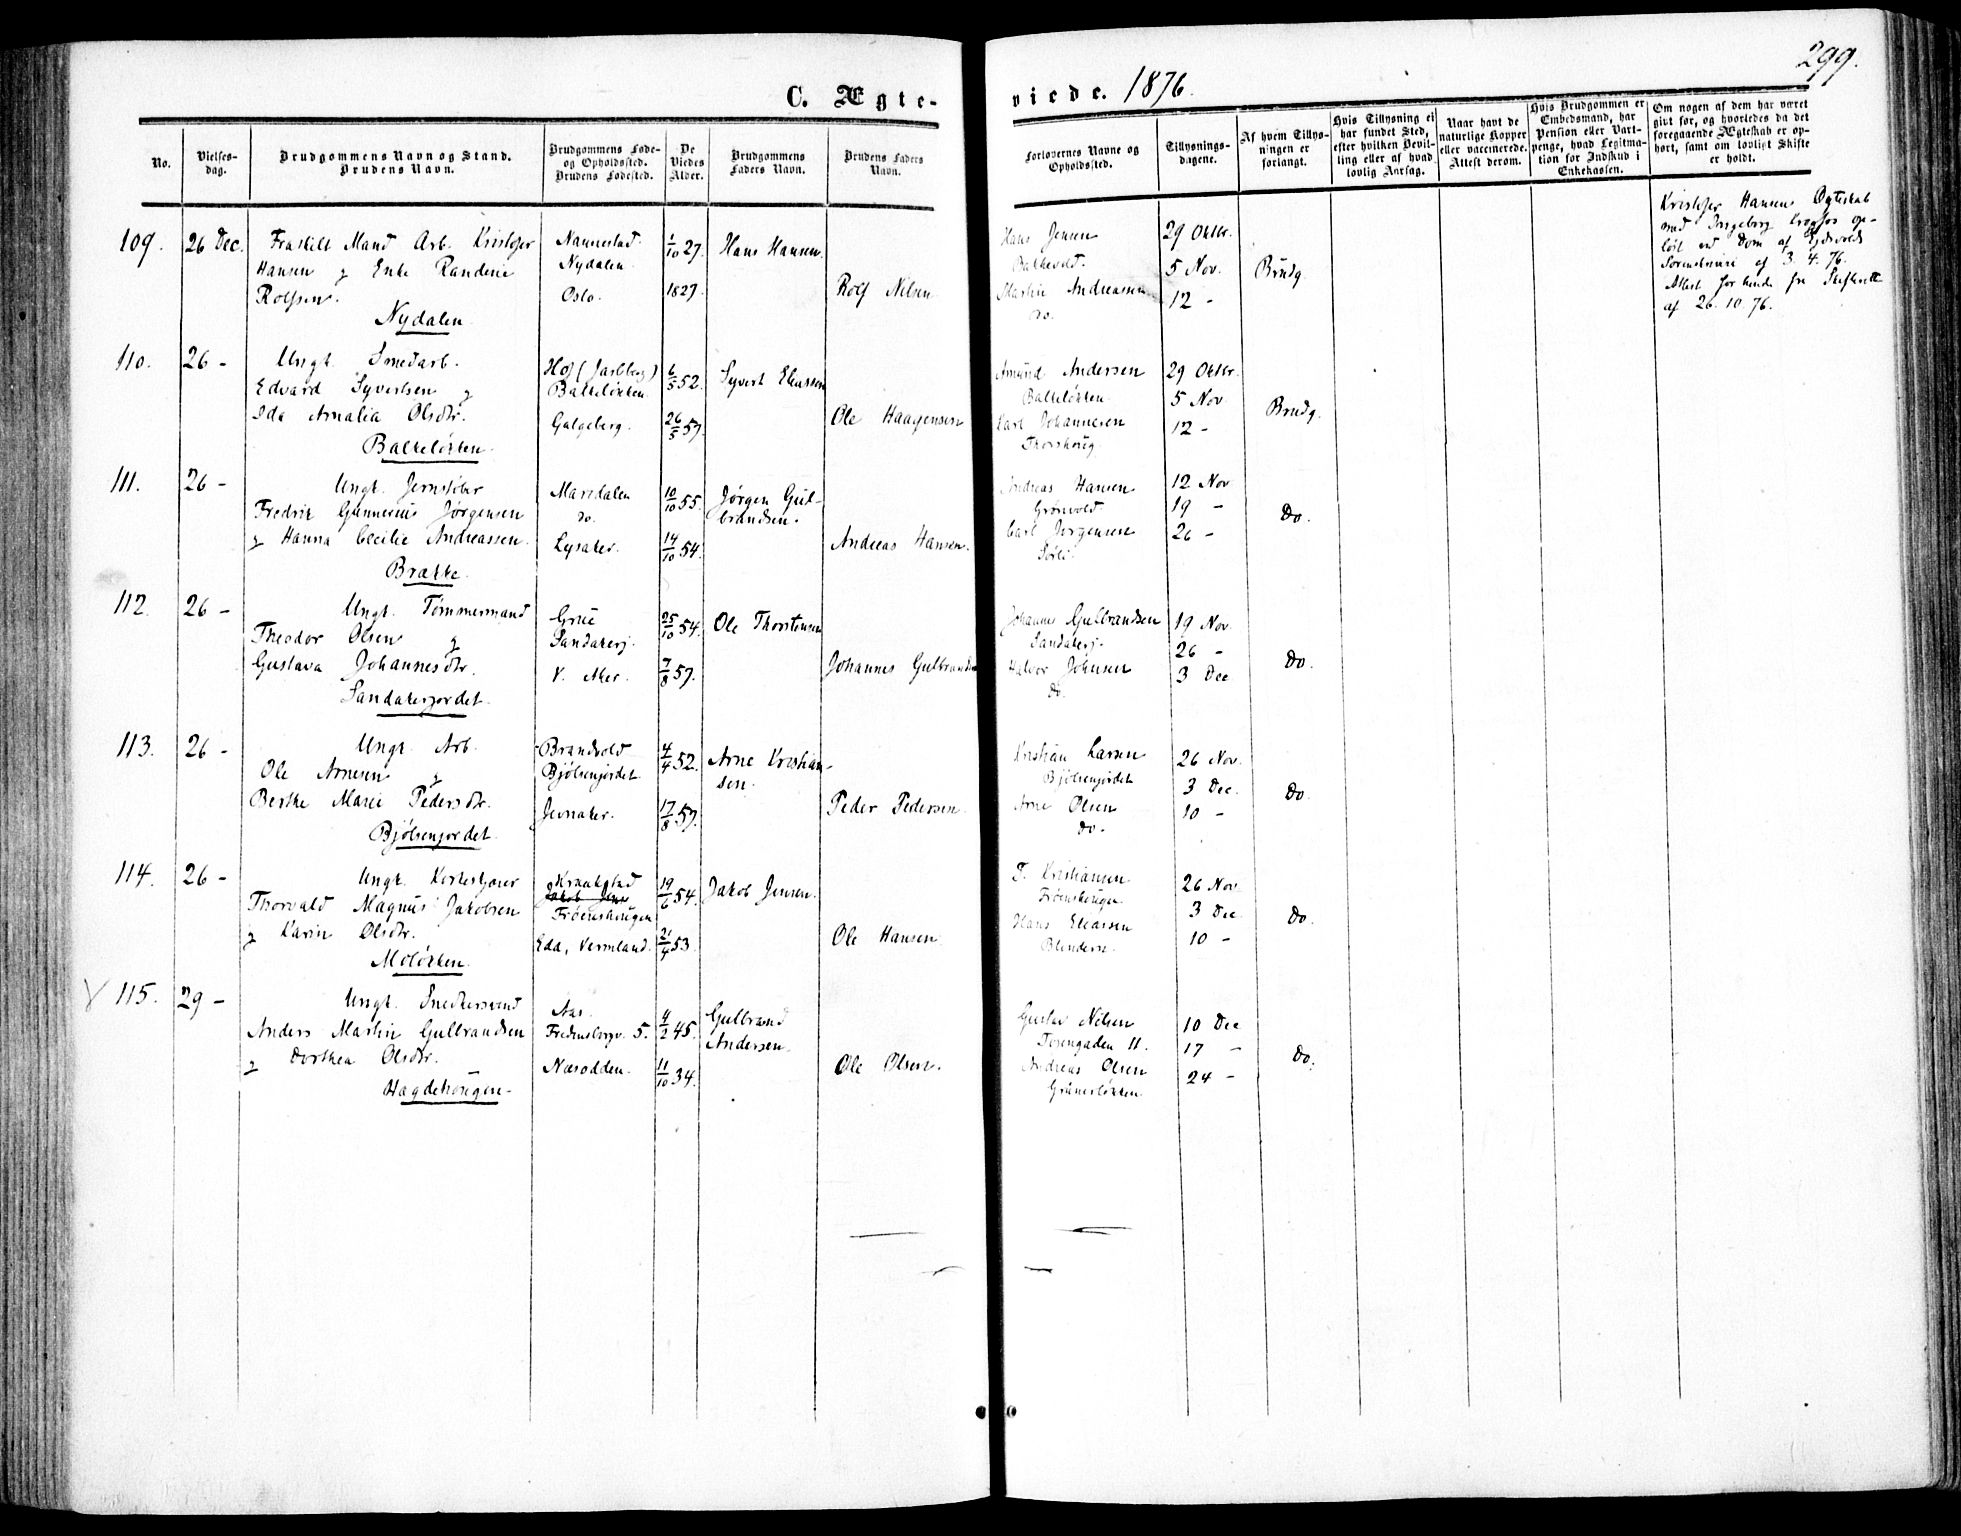 299.
C. Ægte-
viede. 1876.
No.
Vielses-
dag.
Brudgommens Navn og Stand.
Brudens Navn.
Brudgommens Føde-
og Opholdssted.
Brudens Fødested.
De
Viedes
Alder.
Brudgommens
Faders Navn.
Brudens Faders
Navn.
Forlovernes Navne og
Opholdssted.
Tillysnings-
dagene.
Af hvem Tillys-
ningen er
forlangt.
Hvis Tillysning ei
har fundet Sted,
efter hvilken Bevil-
ling eller af hvad
lovlig Aarsag.
Naar havt de
naturlige Kopper
eller vaccinerede.
Attest derom.
Hvis Brudgommen er
Embedsmand, har
Pension eller Vart-
penge, hvad Legitima-
tion for Indskud i
Enkekassen.
Om nogen af dem har været
gift før, og hvorledes da det
foregaaende Ægteskab er op-
hørt, samt om lovligt Skifte
er holdt.
109. 26 Dec. Fraskilt Mand Arb. Kristofer
Hansen og Enke Randine
Rolfsen.
Nydalen
Nannestad.
Nydalen.
Oslo.
1/10 27.
1827.
Hans Hansen.
Rolf Nilsen
Hans Jensen
Balkevold.
Martin Andreassen
do.
29 Oktbr.
5 Nov.
12 -
Brudg.
Kristofer Hansens Ægteskab
med Ingeborg op-
løst ved Dom af Eidsvolds
Sorenskriveri af 3.4.76.
Attest for hende fra Skifteret
af 26.10.76.
110. 26 - Ungk. Smedarb.
Edvard Syvertsen og
Ida Amalia Olsdtr.
Balkeløkken.
Hof (Jarlsberg)
Balkeløkken
Galgeberg.
6/5 52.
26/5 57.
Syvert Eliassen
Ole Haagensen
Amund Andersen
Balkeløkken.
Karl Johannesen
Thorshoug
29 Oktbr.
5 Nov
12 -
Brudg.
111. 26 - Ungk. Jernstøber
Fredrik Gunnerius Jørgensen
og Hanna Cecilie Andreassen.
Brække.
Maridalen
do.
Lysaker.
10/10 55.
14/10 54.
Jørgen Gul-
brandsen.
Andreas Hansen.
Andreas Hansen
Grønvold
Carl Jørgensen
Sørli.
12 Nov
19 -
26 -
Do.
112. 26 - Ungk. Tømmermand
Theodor Olsen og
Gustava Johannesdtr.
Sandakerjordet.
Grue
Sandakerj.
V. Aker.
25/10 54.
7/8 57.
Ole Thorstensen
Johannes Gulbrandsen
Johannes Gulbrandsen
Sandakerj.
Halvor Johnsen
do.
19 Nov.
26 -
3 Dec.
Do.
113. 26 - Ungk. Arb.
Ole Arnesen og
Berthe Marie Pedersdtr.
Bjølsenjordet.
Brandvold
Bjølsenjordet
Jevnaker.
4/4 52.
17/8 57.
Arne Kristian-
sen.
Peder Pedersen.
Kristian Larsen
Bjølsenjordet
Arne Olsen
do.
26 Nov.
3 Dec.
10 -
Do.
114. 26 - Ungk.
Thorvald Magnus Jakobsen
og Karin Olsdtr.
Moløkken.
Kraakstad
Frøenshougen
Eda, Vermland.
19/6 54.
21/4 53.
Jakob Jensen.
Ole Hansen
T. Kristiansen
Frøenshaugen
Hans Eliassen
Blindern.
26 Nov.
3 Dec.
10 -
Do.
115. 29 - Ungk. Snedkersvend
Anders Martin Gulbrandsen
og Dorthea Olsdtr.
Hagdehougen.
Aas.
Fredensborgv. 5.
Næsodden.
4/2 45.
11/10 34.
Gulbrand
Andersen.
Ole Olsen.
Gustav Nilsen
Torvgaden 11.
Andreas Olsen
Grünerløkken.
10 Dec
17 -
24 -
Do.